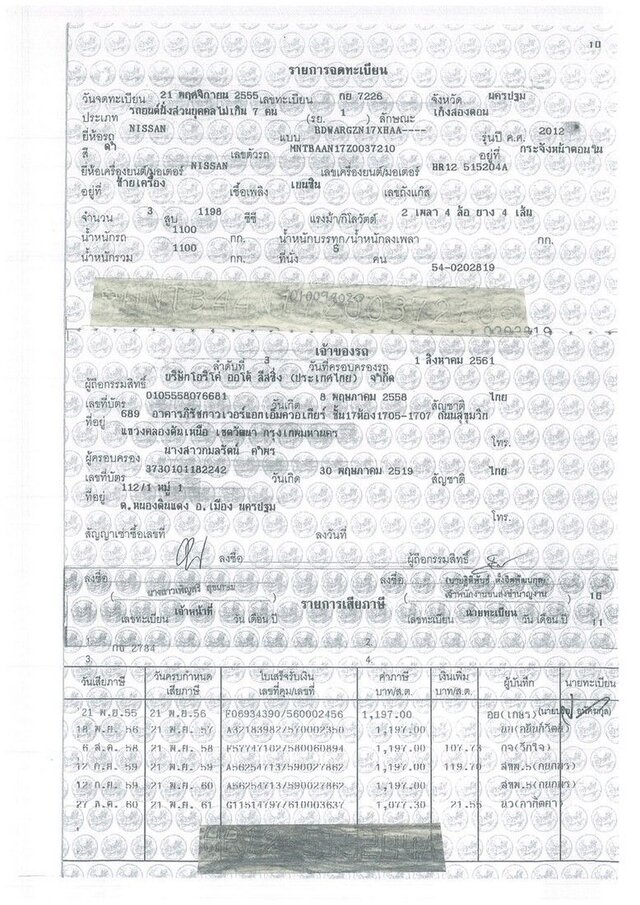 10
รายการจดทะเบียน
วันจดทะเบียน 21 พฤศจิกายน 2555 เลขทะเบียน กย 7226 จังหวัด นครปฐม
ประเภท รถยนต์นั่งส่วนบุคคลไม่เกิน 7 คน (รย. 1 ) ลักษณะ เก๋งสองตอน
ยี่ห้อรถ NISSAN แบบ BDWARGZN17XHAA---- รุ่นปี ค.ศ. 2012
สี ดำ เลขตัวรถ MNTBAAN17Z0037210 อยู่ที่ กระจังหน้าตอนใน
ยี่ห้อเครื่องยนต์/มอเตอร์ NISSAN เลขเครื่องยนต์/มอเตอร์ HR12 515204A
อยู่ที่ ซ้ายเครื่อง เชื้อเพลิง เบนซิน เลขถังแก๊ส
จำนวน 3 สูบ 1198 ซีซี แรงม้า/กิโลวัตต์ 2 เพลา 4 ล้อ ยาง 4 เส้น
น้ำหนักรถ 1100 กก. น้ำหนักบรรทุก/น้ำหนักลงเพลา กก.
น้ำหนักรวม 1100 กก. ที่นั่ง คน
54-0202819
เจ้าของรถ
ลำดับที่ 3 วันที่ครอบครองรถ 1 สิงหาคม 2561
ผู้ถือกรรมสิทธิ์ บริษัทโอริโค่ ออโต้ ลีสซิ่ง (ประเทศไทย) จำกัด
เลขที่บัตร 0105558076681 วันเกิด 8 พฤษภาคม 2558 สัญชาติ ไทย
ที่อยู่ 689 อาคารภิรัชทาวเวอร์แอทเอ็มควอเทียร์ ชั้น17ห้อง1705-1707 ถนนสุขุมวิท
แขวงคลองตันเหนือ เขตวัฒนา กรุงเทพมหานคร โทร.
ผู้ครอบครอง นางสาวกมลรัตน์ คำพร
เลขที่บัตร 3730101182242 วันเกิด 30 พฤษภาคม 2519 สัญชาติ ไทย
ที่อยู่ 112/1 หมู่ 1
ต.หนองดินแดง อ.เมือง นครปฐม โทร.
สัญญาเช่าซื้อเลขที่ ลงวันที่
ลงชื่อ ผู้ถือกรรมสิทธิ์
ลงชื่อ ลงชื่อ
เจ้าพนักงานขนส่งชำนาญงาน 16
เจ้าหน้าที่ รายการเสียภาษี นายทะเบียน
เลขทะเบียน วัน เดือน ปี เลขทะเบียน วัน เดือน ปี 11
1. 2.
กย 2784
3. 4.
วันเสียภาษี วันครบกำหนดเสียภาษี ใบเสร็จรับเงิน เลขที่คุม/เลขที่ ค่าภาษี บาท/ส.ต. เงินเพิ่ม บาท/ส.ต. ผู้บันทึก นายทะเบียน
21 พ.ย.55 21 พ.ย.56 F06934390/560002456 1,197.00
21 พ.ย. 57 A32183982/570002350 1,197.00
6 ส.ค. 58 21 พ.ย. 58 F57747102/580060894 1,197.00 107.73
12 ก.ย. 59 21 พ.ย. 59 A56254713/590027862 1,197.00 119.70
12 ก.ย. 59 21 พ.ย. 60 A56254713/590027862 1,197.00
21 พ.ย. 61 G11514797/610003637 1,077.30 21.55